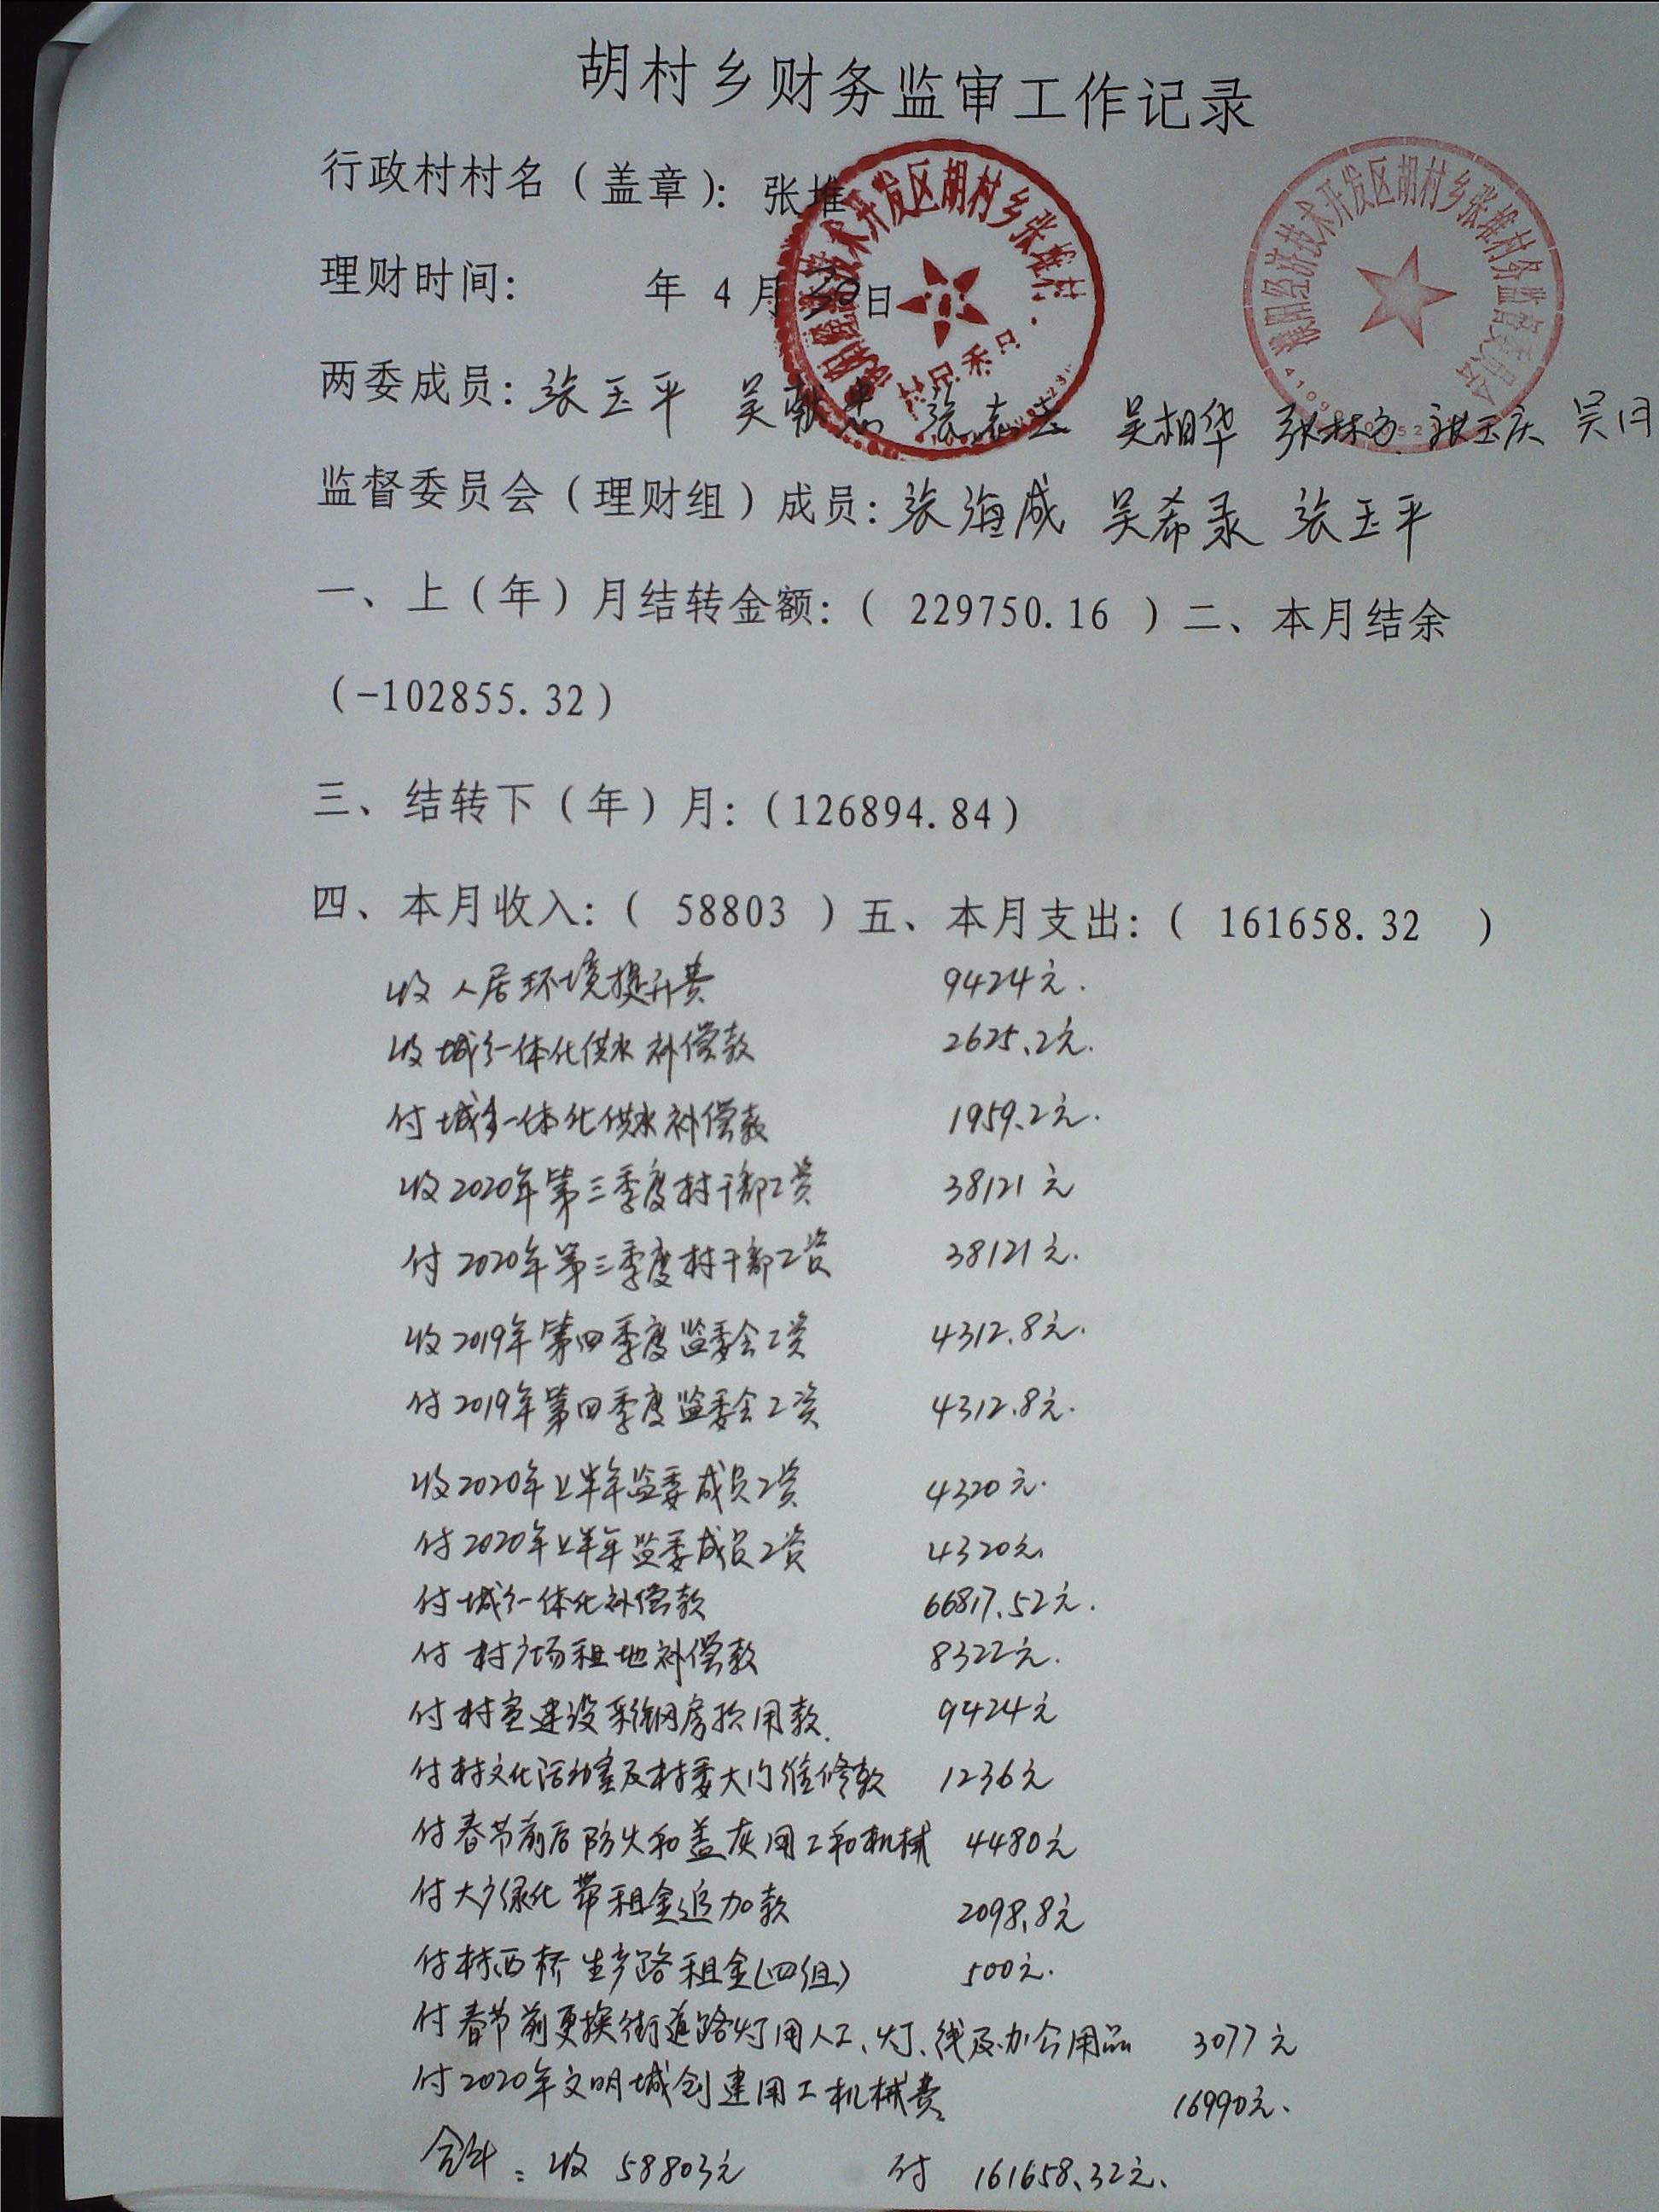 胡村乡财务监审工作记录
行政村村名（盖章）：张堆
理财时间： 年 4 月30日
两委成员：张玉平 吴献忠 张志玉 吴相华 张林方 张玉庆 吴同
监督委员会（理财组）成员：张海成 吴希录 张玉平
一、上（年）月结转金额：（ 229750.16 ）二、本月结余
（-102855.32）
三、结转下（年）月：（126894.84）
四、本月收入：（ 58803 ）五、本月支出：（ 161658.32 ）
收人居环境提升费 9424元.
收城乡一体化供水补偿款 2625.2元.
付城乡一体化供水补偿款 1959.2元.
收2020年第三季度村干部工资 38121元
付2020年第三季度村干部工资 38121元.
收2019年第四季度监委会工资 4312.8元.
付2019年第四季度监委会工资 4312.8元.
收2020年上半年监委成员工资 4320元.
付2020年上半年监委成员工资 4320元.
付城乡一体化补偿款 66817.52元.
付村广场租地补偿款 8322元.
付村室建设彩钢房预用款. 9424元
付村文化活动室及村委大门维修款 1236元
付春节前后防火和盖灰用工和机械 4480元
付大广绿化带租金追加款 2098.8元
付村西桥生产路租金(四组) 500元.
付春节前更换街道路灯用人工、灯、线及办公用品 3077元
付2020年文明城创建用工机械费 16990元.
合计：收 58803元 付 161658.32元.
濮阳经济技术开发区胡村乡张堆村务监督委员会